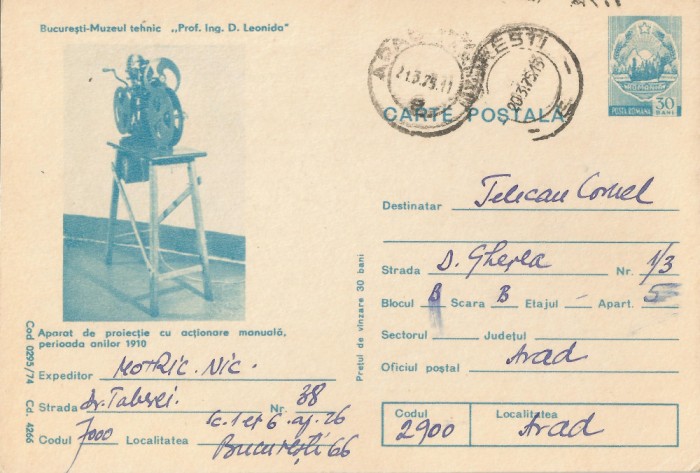 București-Muzeul tehnic „Prof. Ing. D. Leonida”
21.3.75.11
20.3.75.15
CARTE POȘTALĂ
ROMANIA
POSTA ROMANA
30
BANI
Destinatar Telecan Cornel
Strada D. Gherea Nr. 1/3
Blocul B Scara B Etajul Apart. 5
Sectorul Județul
Oficiul poștal Arad
Codul Localitatea
2900 Arad
Prețul de vînzare 30 bani
Cod 0295/74 Cd. 4266
Aparat de proiecție cu acționare manuală,
perioada anilor 1910
Expeditor Motric. Nic.
Strada Dr. Taberei. Nr. 38
sc. 1 et 6 ap. 26
Codul 7000 Localitatea București 66